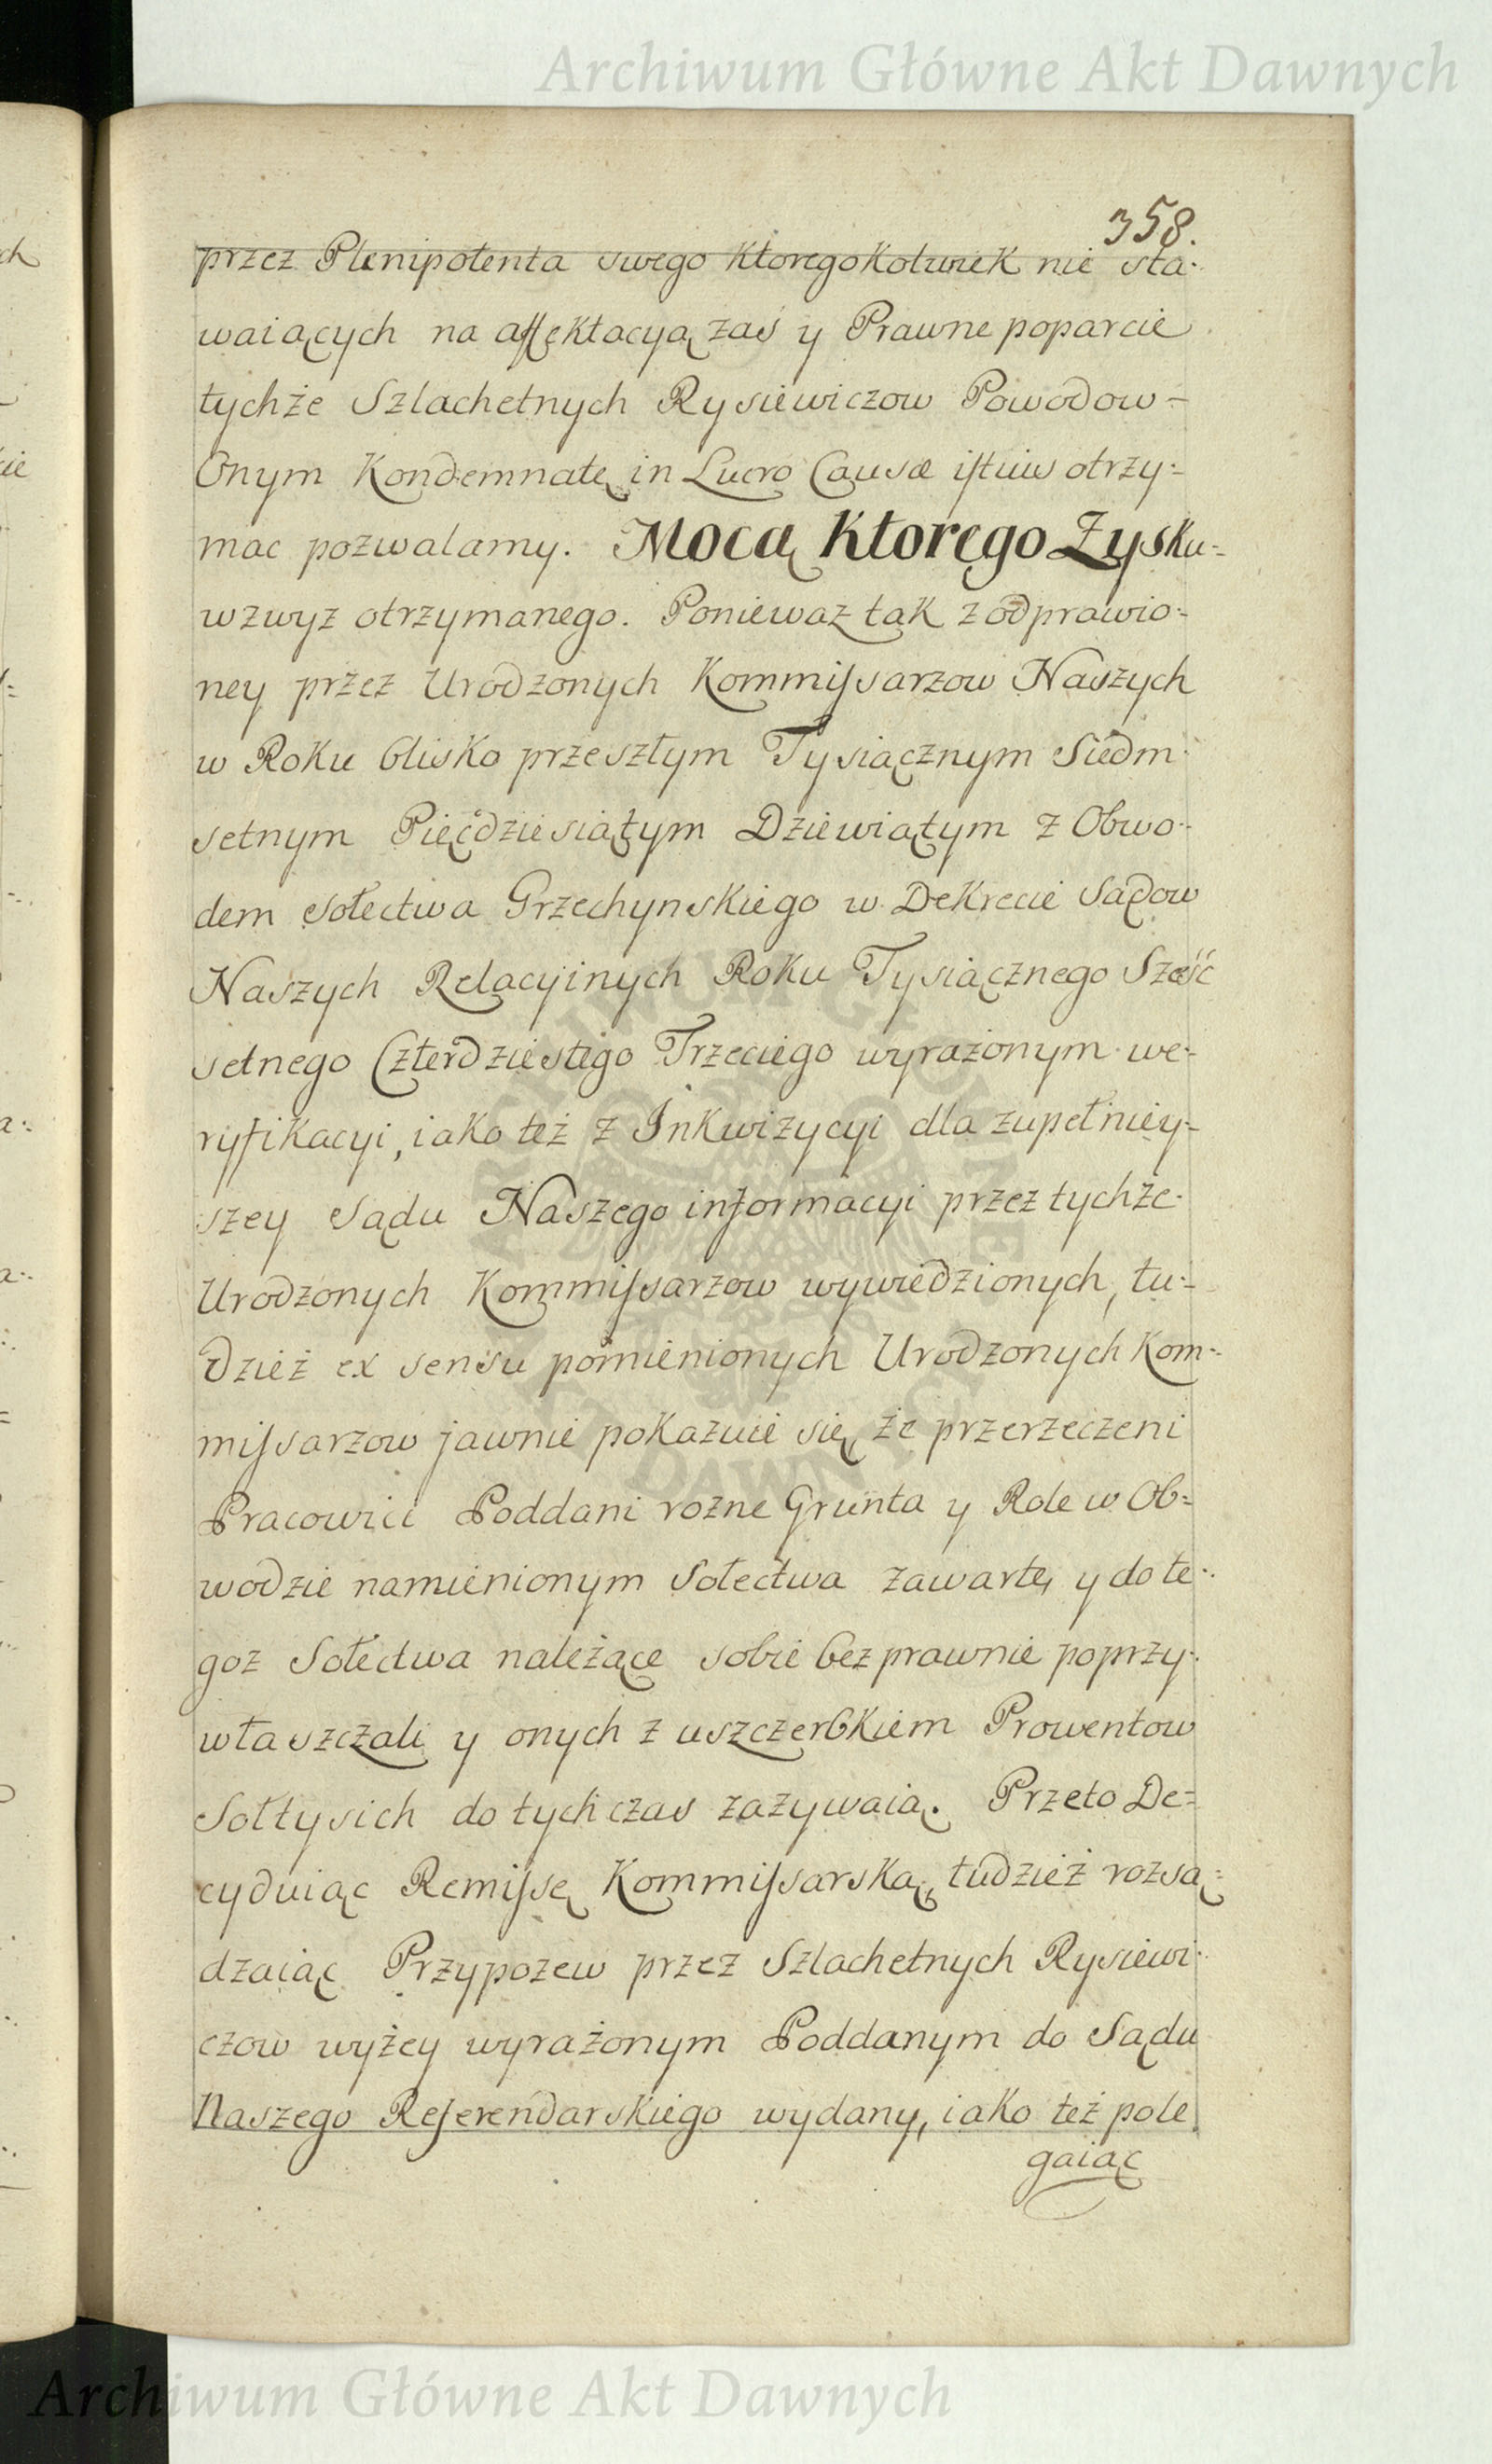 Archiwum Główne Akt Dawnych
358.
przez Plenipotenta swego ktoregokolwiek nie sta-
waiących na affektacyą zaś y Prawne poparcie
tychże Szlachetnych Rysiewiczow Powodow -
Onym Kondemnatę in Lucro Causæ istius otrzy=
mac pozwalamy. Mocą ktorego Zysku=
wzwyz otrzymanego. Poniewaz tak z odprawio-
ney przez Urodzonych Kommissarzow Naszych
w Roku blisko przeszłym Tysiącznym Siedm
setnym Pięćdziesiątym Dziewiątym z Obwo-
dem Sołectwa Grzechynskiego w Dekrecie Sądow
Naszych Relacyinych Roku Tysiącznego Sześć
setnego Czterdziestego Trzeciego wyrażonym we-
ryfikacyi, iako też z Inkwizycyi dla zupełniey-
szey Sądu Naszego informacyi przez tychże
Urodzonych Kommissarzow wywiedzionych, tu-
dzież ex sensu pomienionych Urodzonych Kom-
missarzow jawnie pokazuie się, że przerzeczeni
Pracowici Poddani rozne Grunta y Role w Ob=
wodzie namienionym Sołectwa zawarte, y do te-
goz Sołectwa należące sobie bezprawnie poprzy-
właszczali y onych z uszczerbkiem Prowentow
Sołtysich do tych czas zazywaią. Przeto De=
cyduiąc Remissę Kommissarską, tudzież rozsą=
dzaiąc Przypozew przez Szlachetnych Rysiewi-
czow wyżey wyrażonym Poddanym do Sądu
Naszego Referendarskiego wydany, iako też pole
gaiąc
Archiwum Główne Akt Dawnych